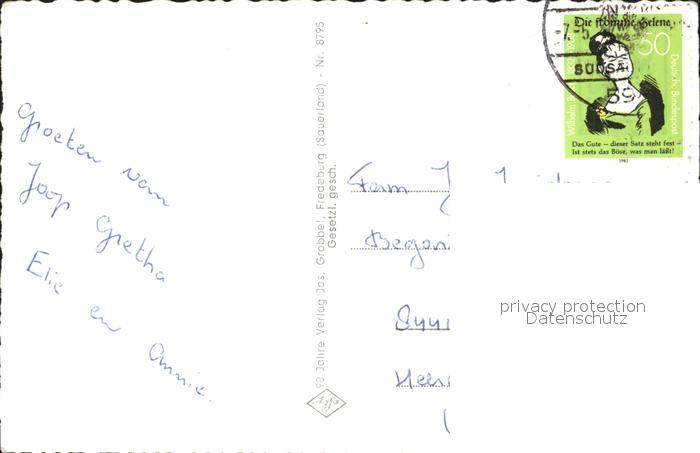 Groeten van
Joop Gretha
Elie en
Annie.
90 Jahre Verlag Jos. Grobbel, Fredeburg (Sauerland) - Nr. 8795
Gesetzl. gesch.
Fam
Begoni
privacy protection
Datenschutz
Die fromme Helene
50
Wilhelm
Deutsche Bundespost
Das Gute – dieser Satz steht fest –
Ist stets das Böse, was man läßt!
1982
59